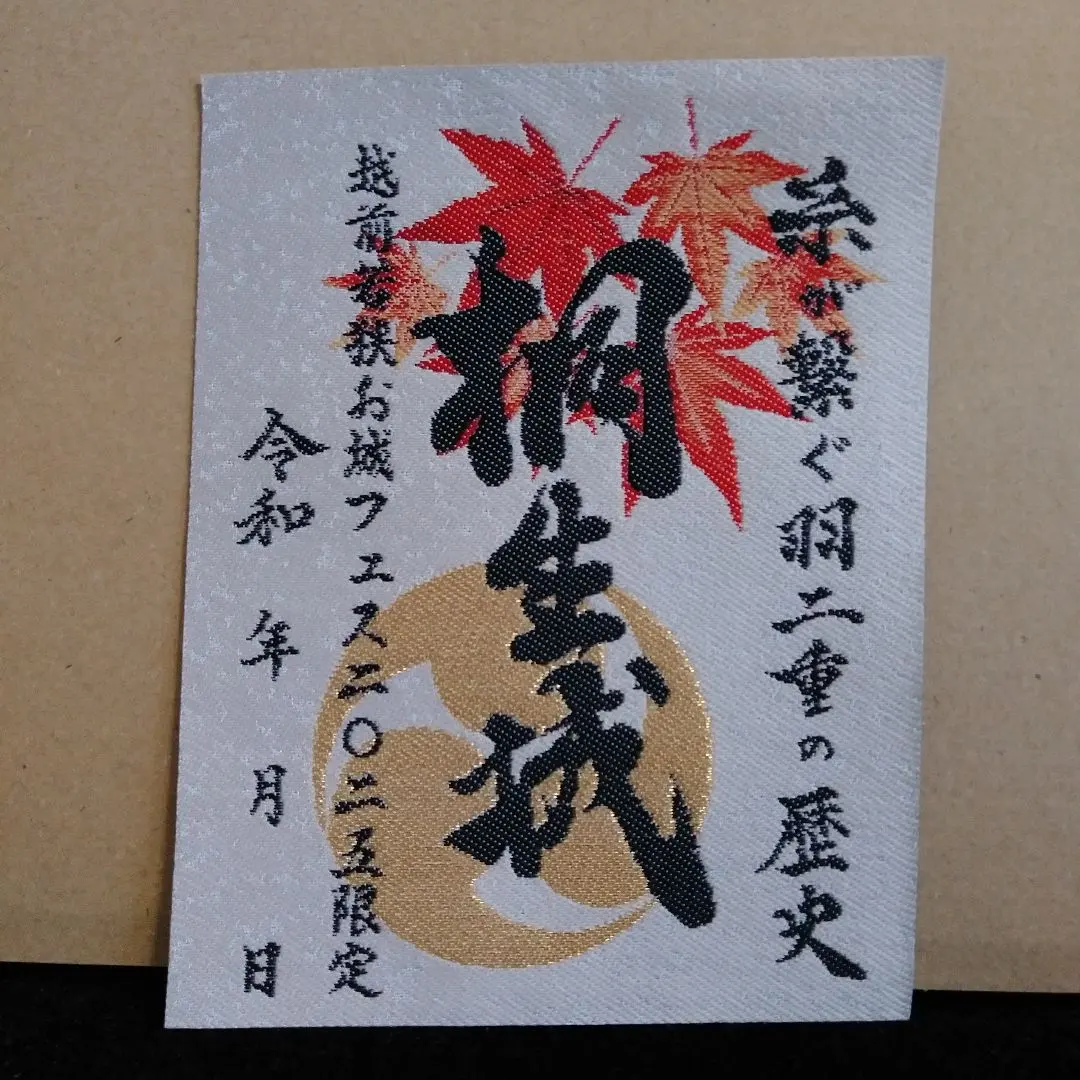 糸が繋ぐ羽二重の歴史
桐生城
越前若狭お城フェス二〇二五限定
令和 年 月 日